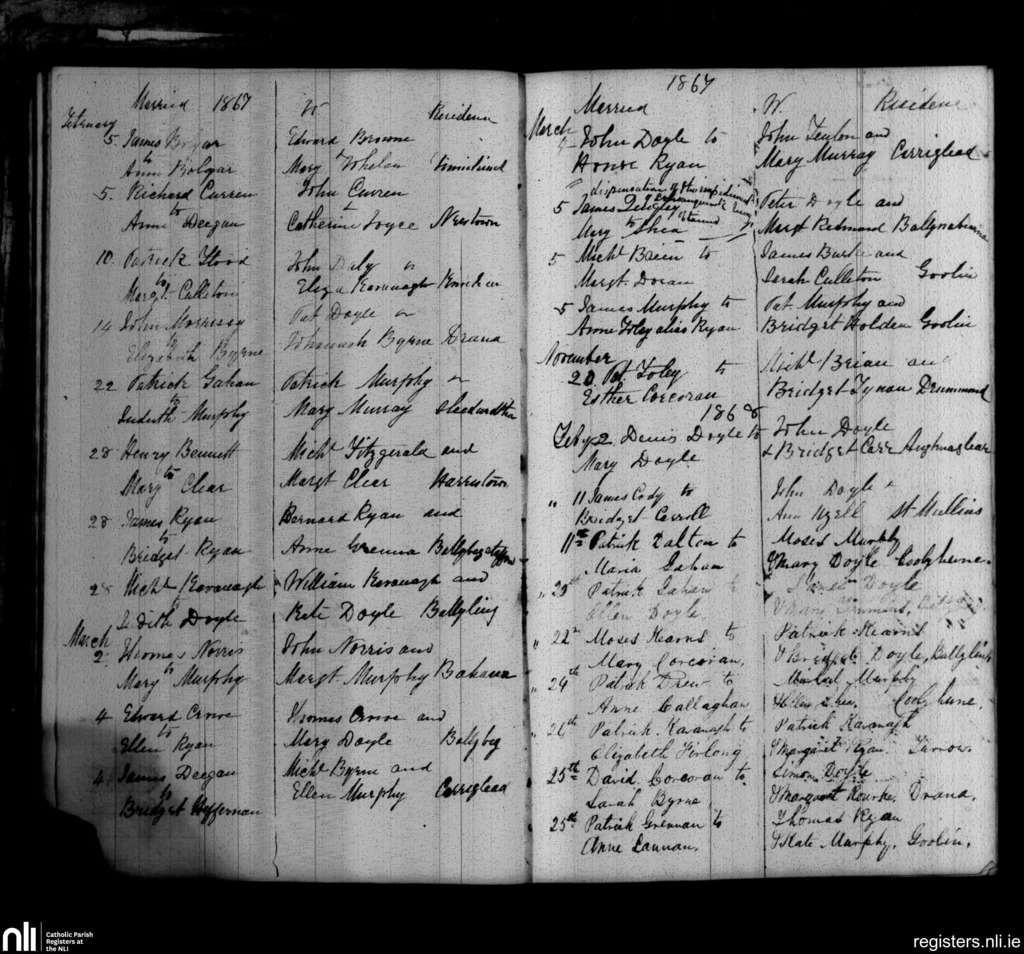 Married 1867 W Residence
February
5. James Bolgar Edward Browne
to
Ann Bolgar Mary Whelan
5. Richard Curren John Curren
to
Anne Deegan Catherine Joyce Newtown
10. Patrick Flood John Daly
to
Margt. Culleton Eliza Kavanagh
14 John Morrissy Pat Doyle
to
Elizabeth Byrne Johannah Byrne Drana
22 Patrick Gahan Patrick Murphy
to
Judith Murphy Mary Murray
28 Henry Bennett Michl Fitzgerald and
to
Mary Clear Margt Clear Harristown
28 James Ryan Bernard Ryan and
to
Bridget Ryan Anne Grenna
28 Michl Kavanagh William Kavanagh and
to
Judith Doyle Kate Doyle Ballyling
March
2. Thomas Norris John Norris and
to
Mary Murphy Margt Murphy Bahana
4 Edward Crowe Thomas Crowe and
to
Ellen Ryan Mary Doyle Ballybeg
4 James Deegan Michl Byrne and
to
Bridget Heffernan Ellen Murphy Carriglead
1867
Married W. Residence
March
John Doyle to John Fenlon and
Honor Ryan Mary Murray Carriglead
dispensation of the impediment
5 James Quigley Peter Doyle and
Mary to Shea Margt Redmond
5 Michl Brien to James Burke and
Margt. Doran Sarah Culleton Goolin
5 James Murphy to Pat. Murphy and
Anne Foley alias Ryan Bridget Holden Goolin
November
20 Pat Foley to Michl Brian and
Esther Corcoran Bridget Tynan Drummond
1868
Feby 2 Denis Doyle to John Doyle
Mary Doyle & Bridget Carr
" 11 James Cody to John Doyle &
Bridget Carroll Ann St Mullins
11th Patrick Dalton to Moses Murphy
Maria Gahan & Mary Doyle Coolyhune.
25th Patrick Gahan to James Doyle
Ellen Doyle & Mary
" 22nd Moses Kearns to Patrick Kearns
Mary Corcoran, & Bridget Doyle, Ballylink
" 24th Patrick Drew to Michael Murphy
Anne Callaghan Coolyhune,
" 26th Patrick Kavanagh to Patrick Kavanagh
Elizabeth Furlong & Margaret Ryan
25th David Corcoran to Simon Doyle
Sarah Byrne, & Margaret Rourke, Drana,
25th Patrick Grennan to Thomas Ryan
Anne Lannan, & Kate Murphy, Goolin,
nli
Catholic Parish
Registers at
the NLI
registers.nli.ie